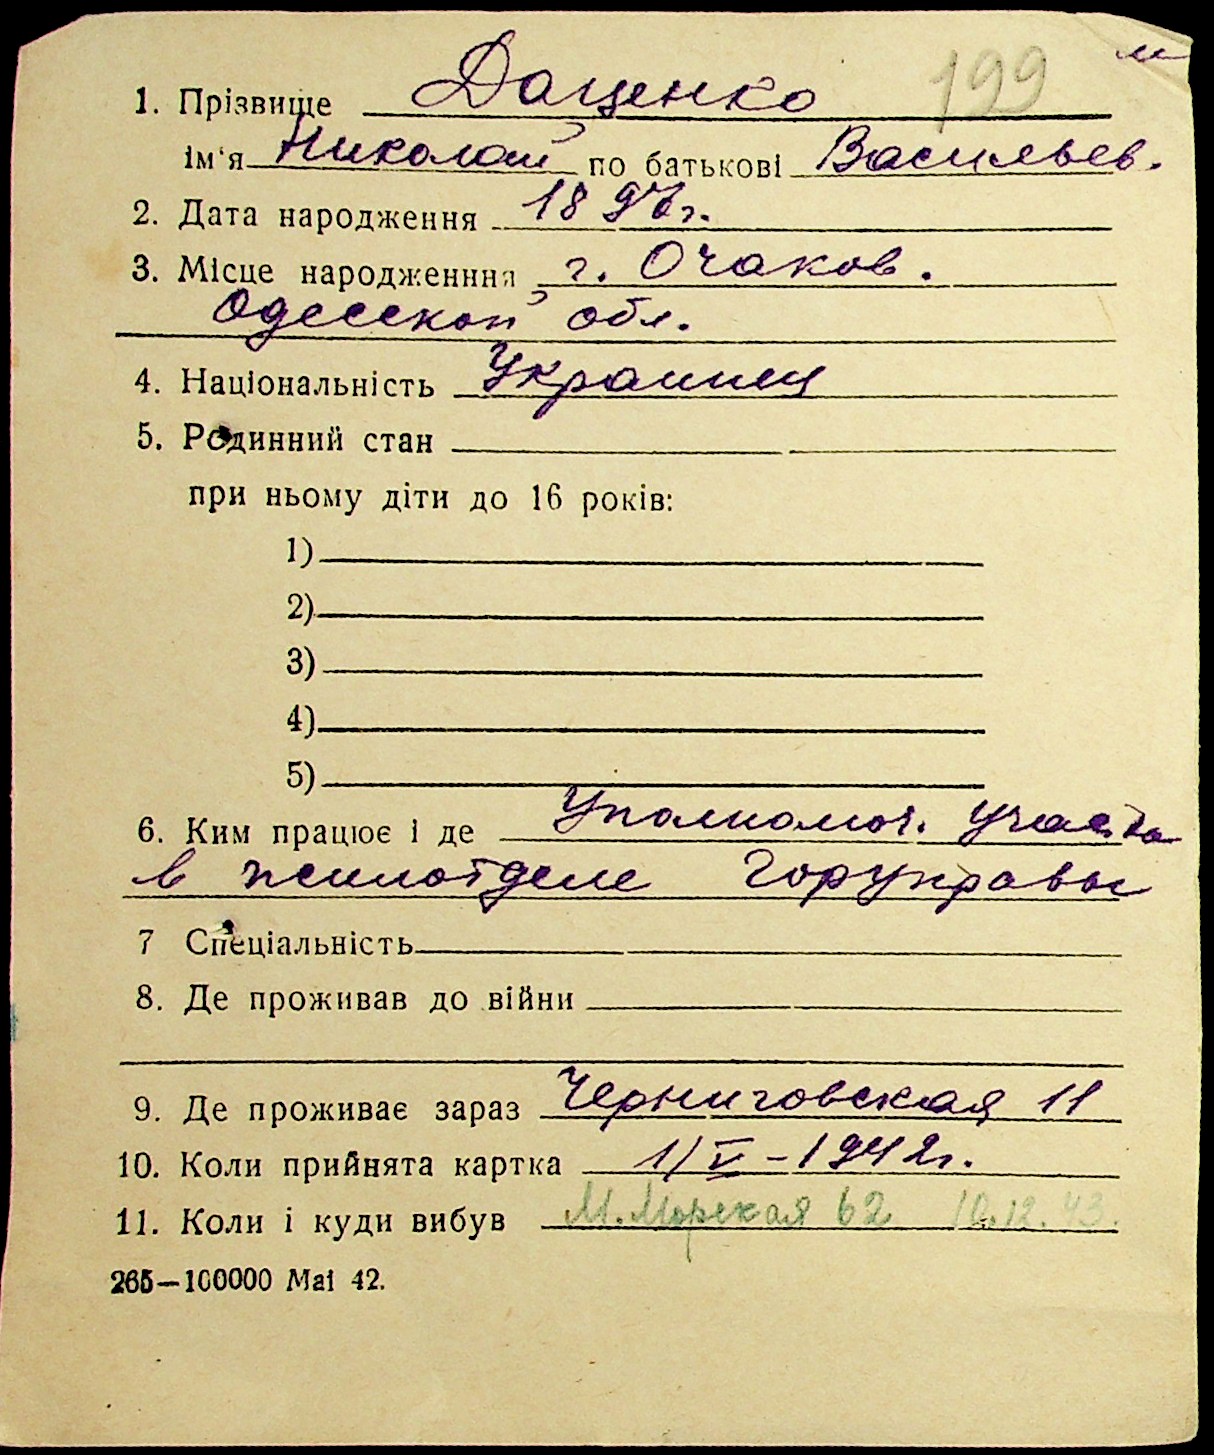 м
199
1. Прізвище Даценко
ім'я Николай по батькові Васильев.
2. Дата народження 1897г.
3. Місце народженння г. Очаков.
Одесской обл.
4. Національність Украинец
5. Родинний стан
при ньому діти до 16 років:
1)
2)
3)
4)
5)
6. Ким працює і де Уполномоч. участка
в жилотделе Горуправы
7 Спеціальність
8. Де проживав до війни
9. Де проживає зараз Черниговская 11
10. Коли прийнята картка 1/V – 1942г.
11. Коли і куди вибув М. Морская 62 10.12.43.
265—100000 Mai 42.